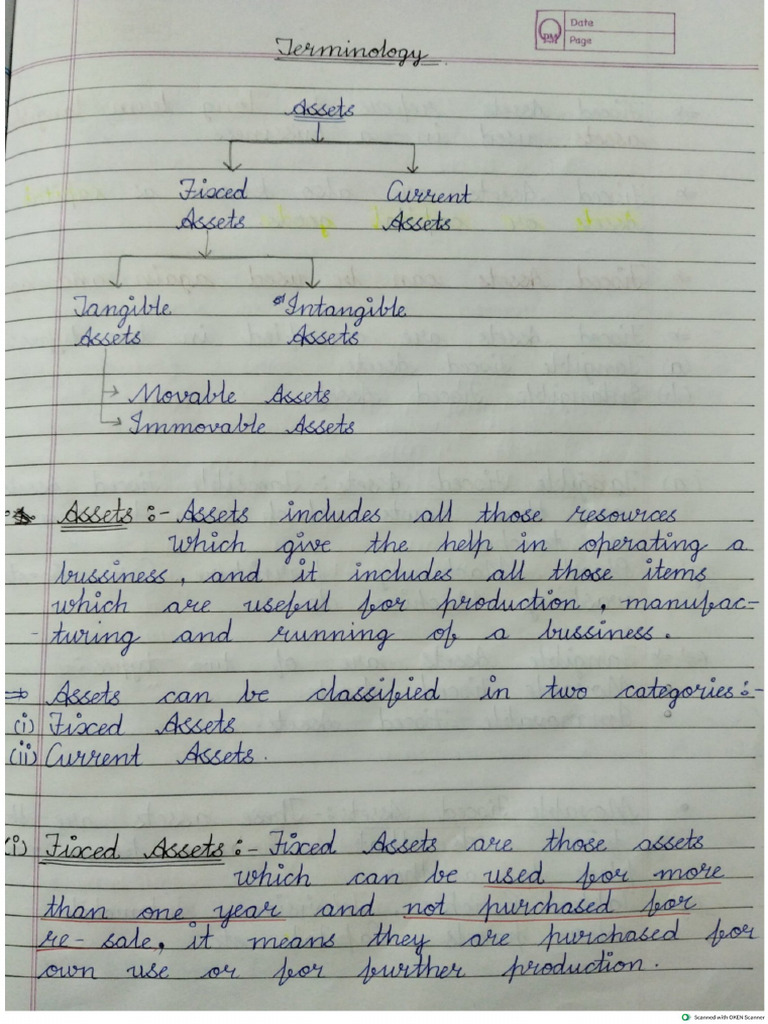 Date
Page
Terminology.
Assets
Fixed Current
Assets Assets
Tangible Intangible
Assets Assets
Movable Assets
Immovable Assets
Assets :- Assets includes all those resources
which give the help in operating a
bussiness, and it includes all those items
which are useful for production, manufac-
-turing and running of a bussiness.
⇒ Assets can be classified in two categories:-
(i) Fixed Assets
(ii) Current Assets.
(i) Fixed Assets :- Fixed Assets are those assets
which can be used for more
than one year and not purchased for
re-sale, it means they are purchased for
own use or for further production.
Scanned with OKEN Scanner